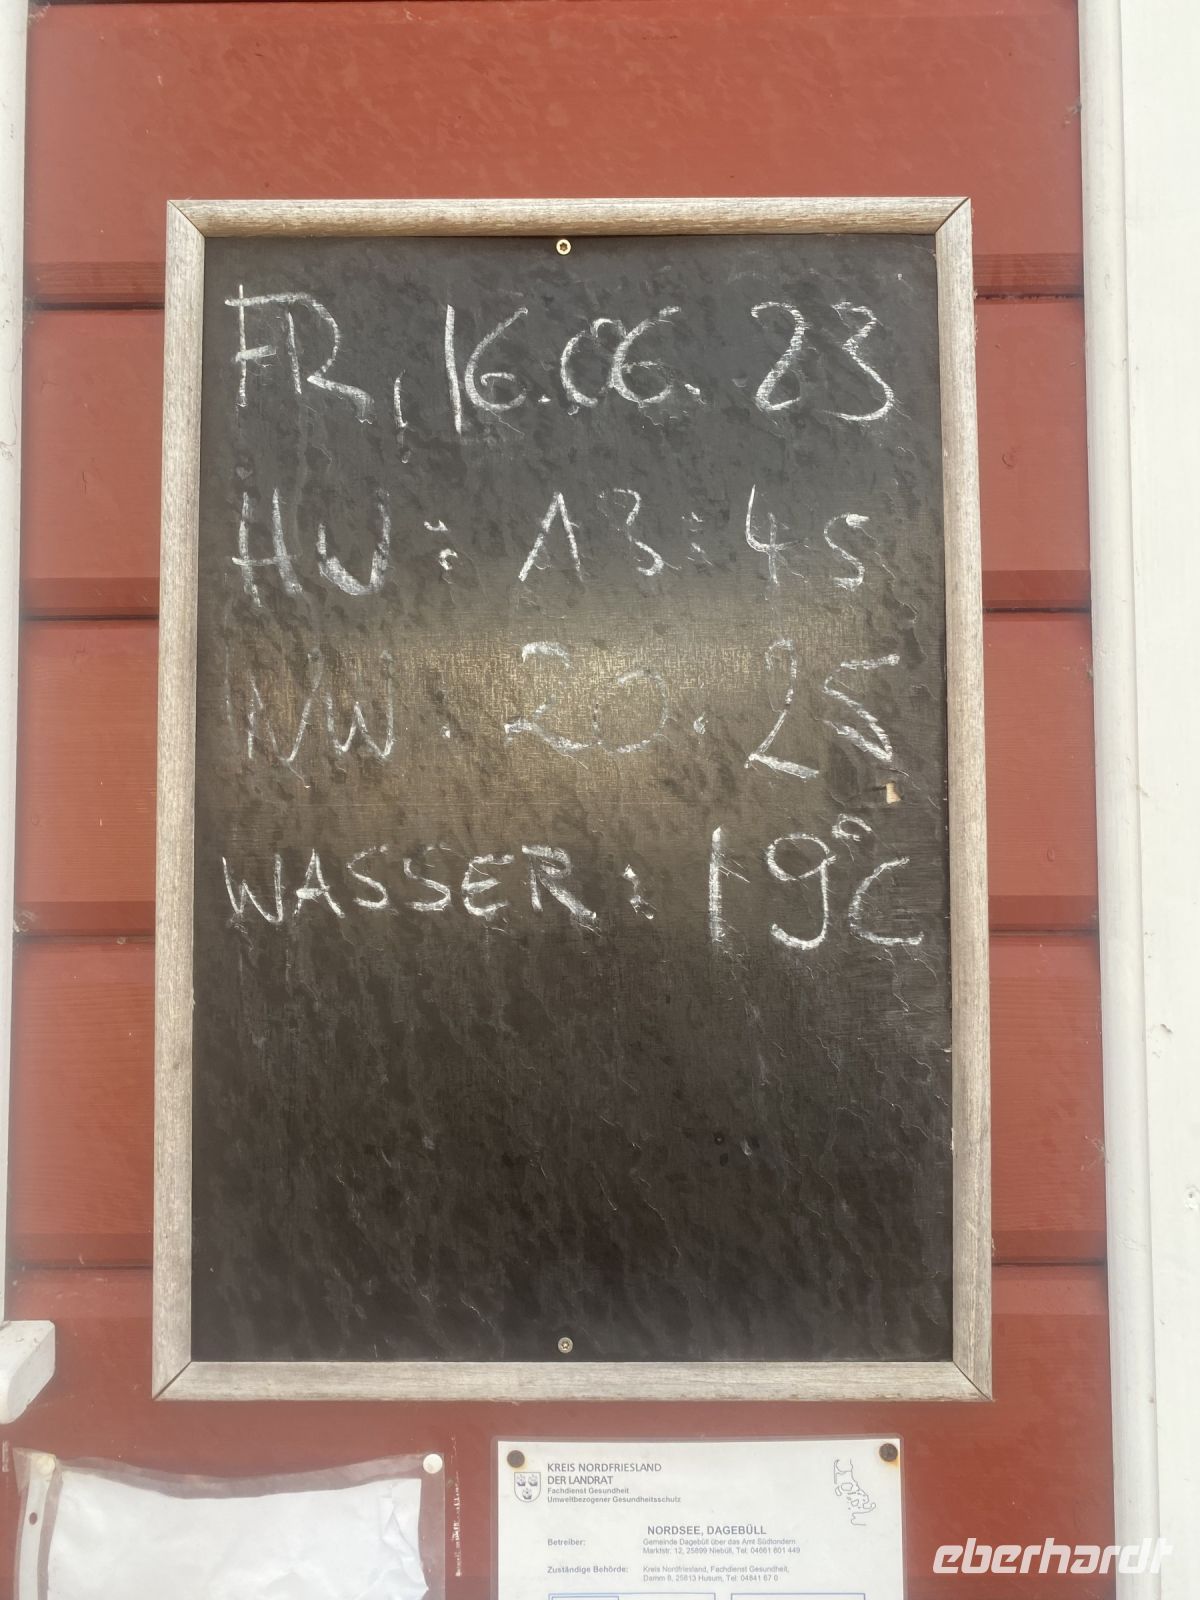 FR, 16.06.23
HW: 13:45
NW: 20.25
WASSER: 19°C
KREIS NORDFRIESLAND
DER LANDRAT
Fachdienst Gesundheit
Umweltbezogener Gesundheitsschutz
NORDSEE, DAGEBÜLL
Betreiber: Gemeinde Dagebüll über das Amt Südtondern
Marktstr. 12, 25899 Niebüll, Tel. 04661 601 449
Zuständige Behörde: Kreis Nordfriesland, Fachdienst Gesundheit,
Damm 8, 25813 Husum, Tel: 04841 67 0
eberhardt